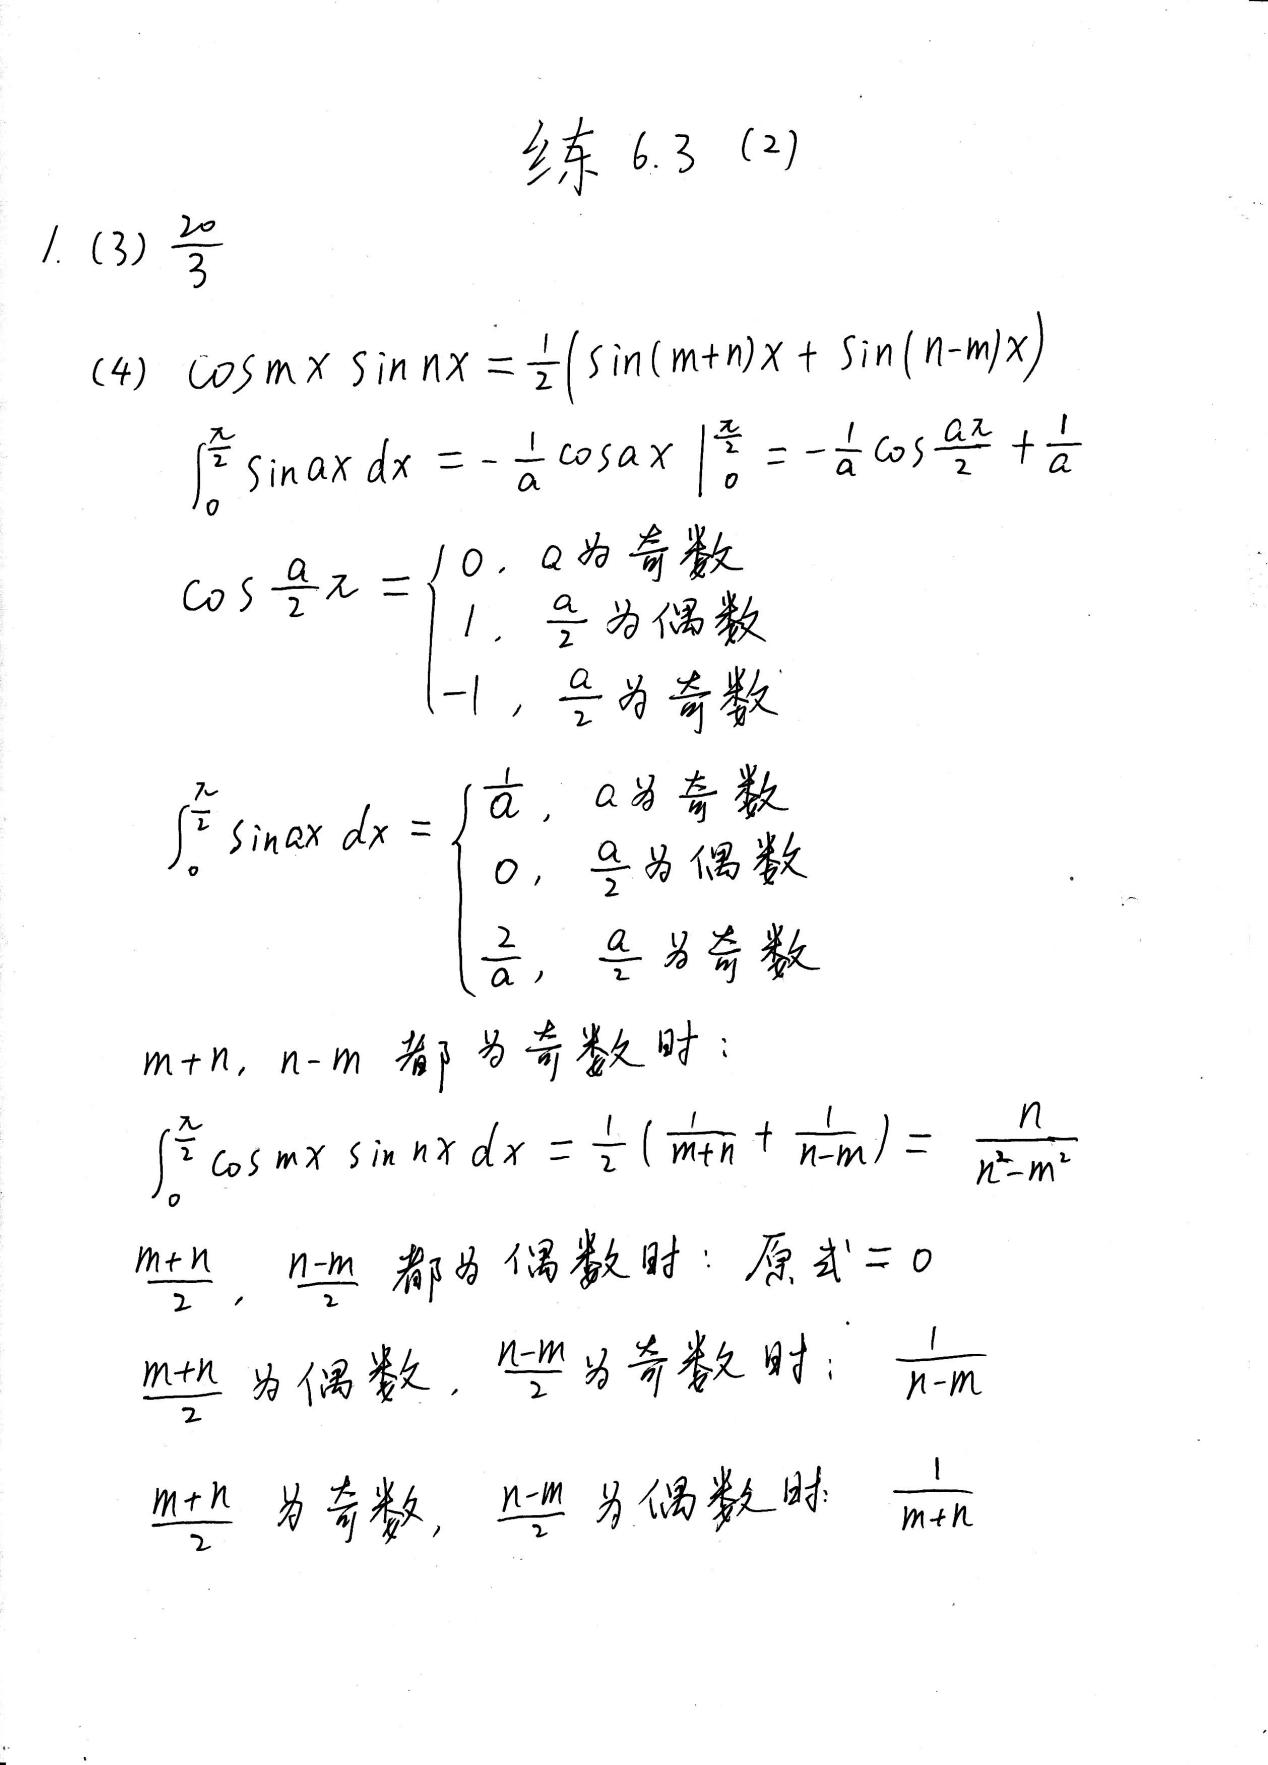 练 6.3 (2)
1. (3) 20/3
(4) cos mx sin nx = 1/2 (sin(m+n)x + sin(n-m)x)
∫₀^{π/2} sin ax dx = -1/a cos ax |₀^{π/2} = -1/a cos aπ/2 + 1/a
cos a/2 π = { 0, a为奇数
1, a/2 为偶数
-1, a/2 为奇数
∫₀^{π/2} sin ax dx = { 1/a, a为奇数
0, a/2 为偶数
2/a, a/2 为奇数
m+n, n-m 都为奇数时:
∫₀^{π/2} cos mx sin nx dx = 1/2 (1/(m+n) + 1/(n-m)) = n/(n²-m²)
(m+n)/2, (n-m)/2 都为偶数时: 原式 = 0
(m+n)/2 为偶数, (n-m)/2 为奇数时: 1/(n-m)
(m+n)/2 为奇数, (n-m)/2 为偶数时: 1/(m+n)